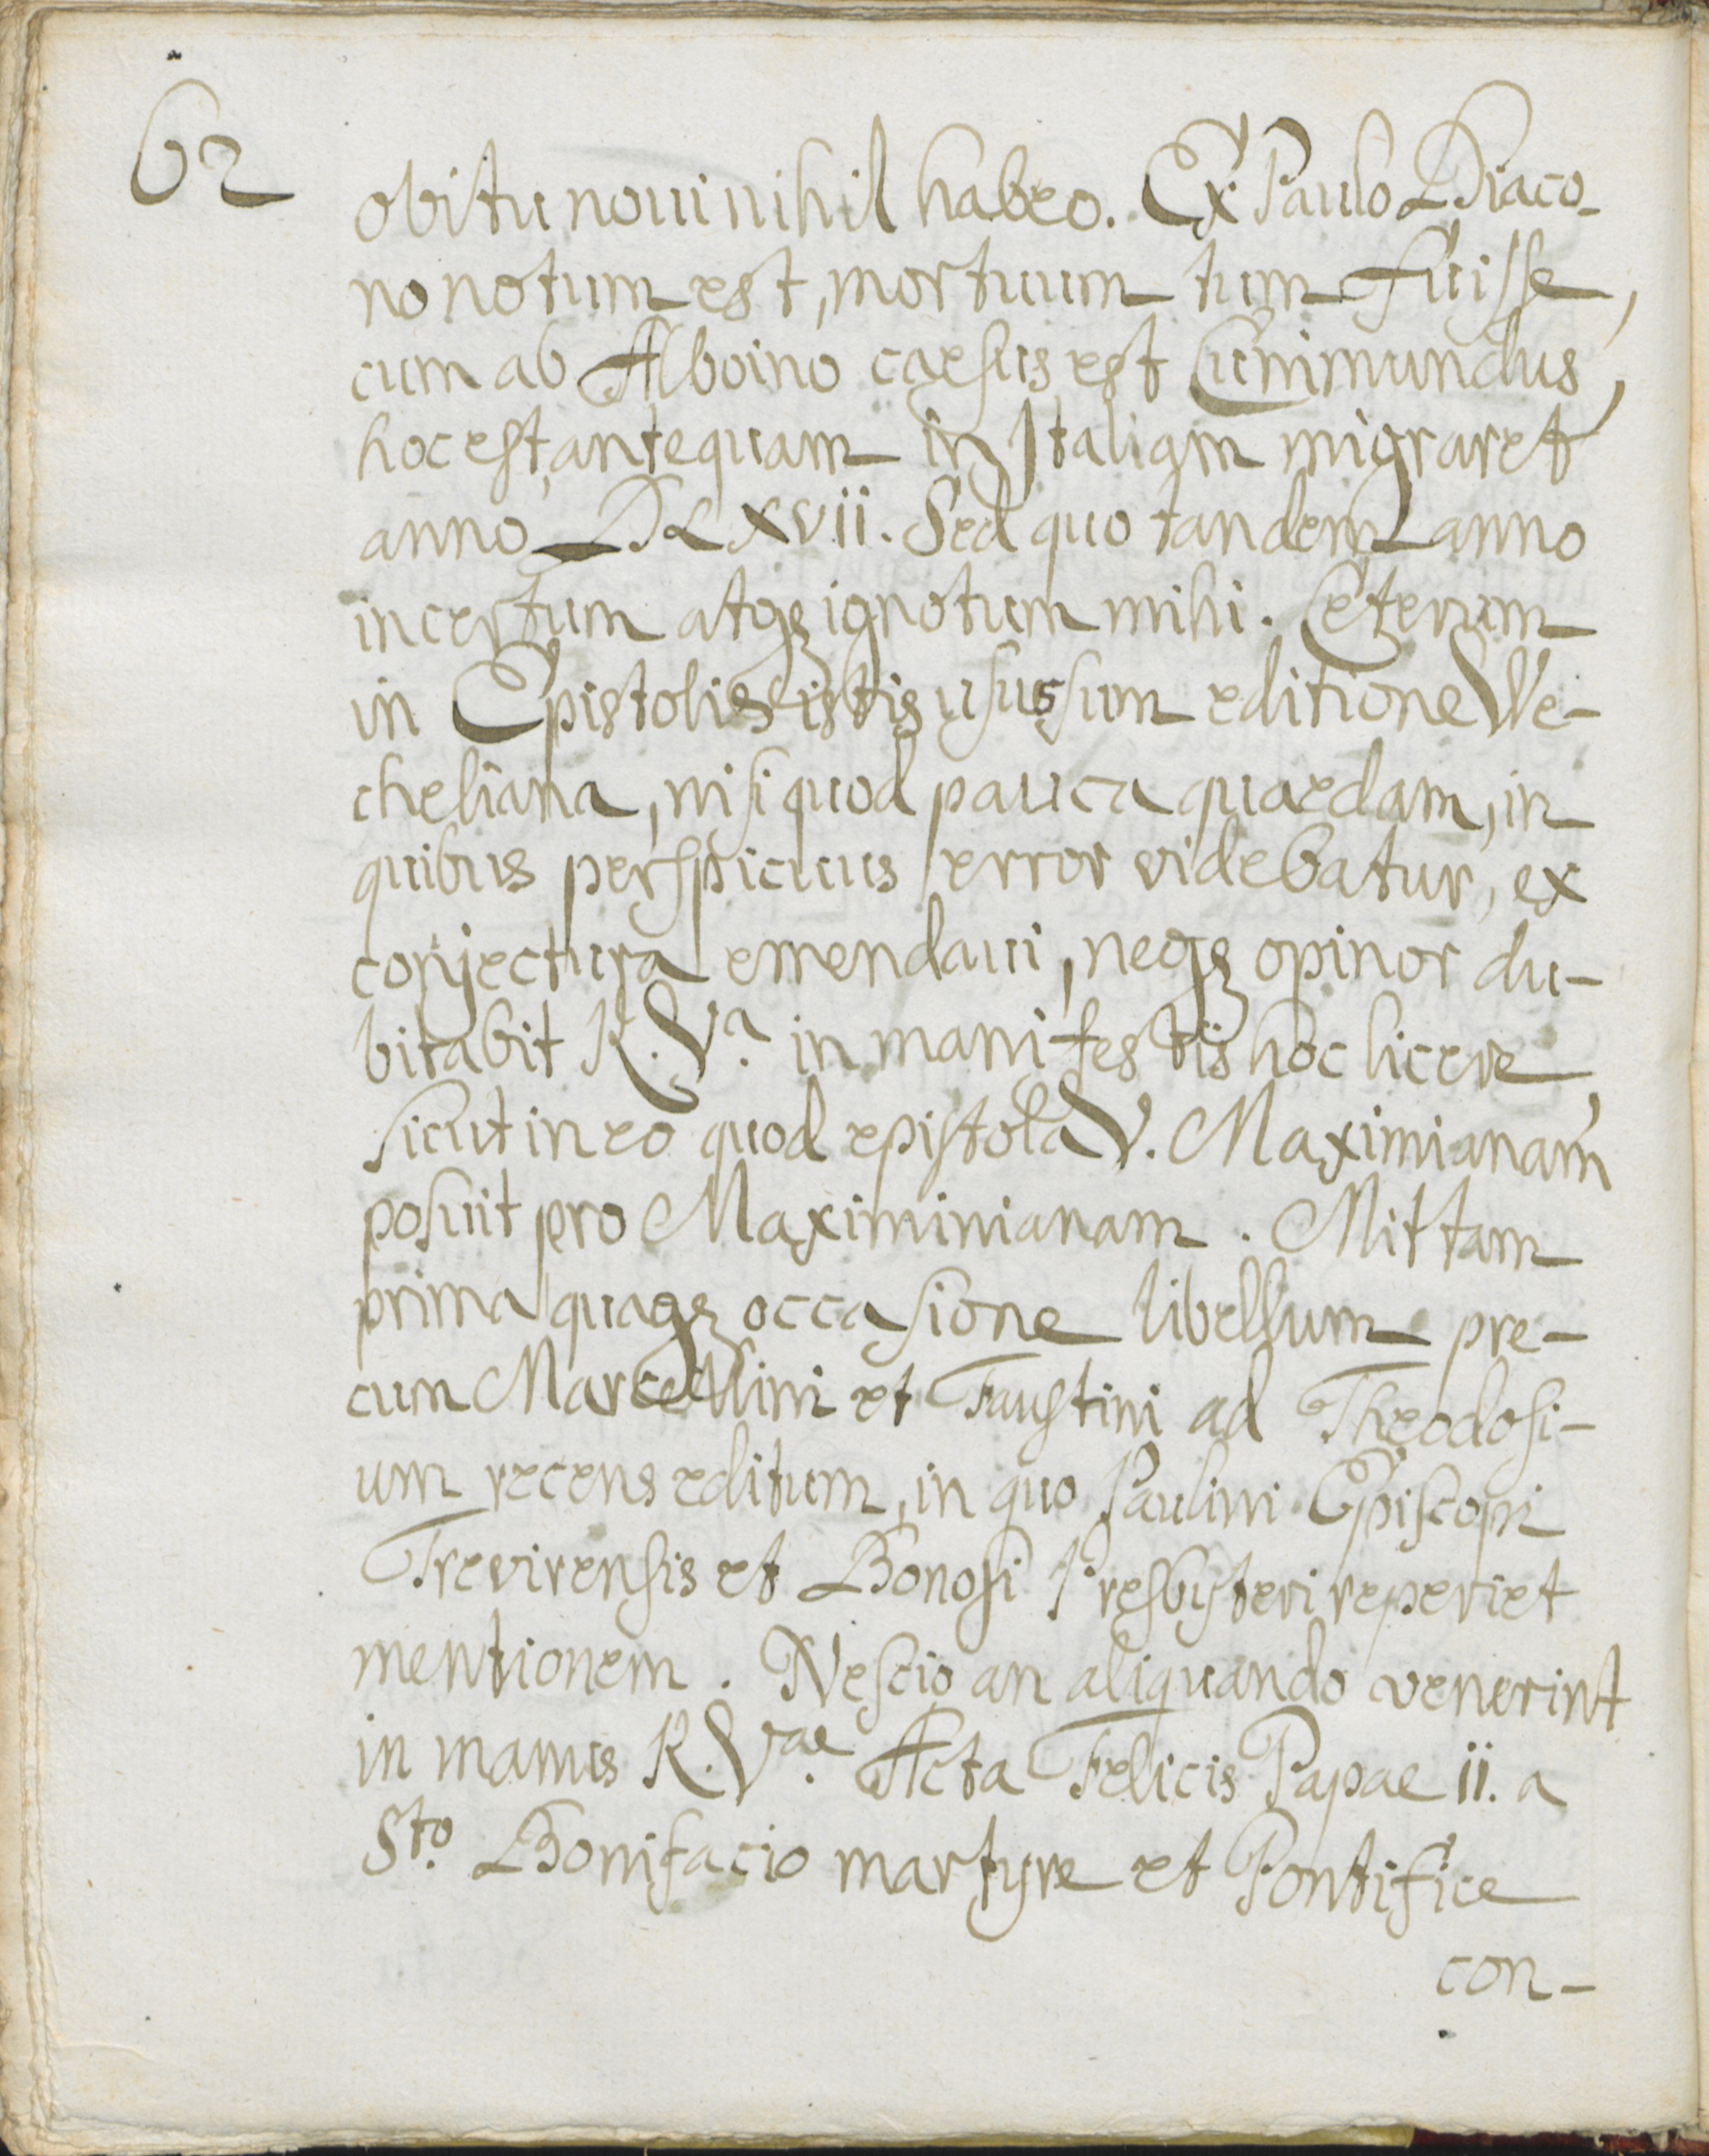 62
obitu noui nihil habeo. Ex Paulo Diaco-
no notum est, mortuum tum fuisse,
cum ab Alboino caesus est Cunimundus,
hoc est, antequam in Italiam migraret
anno DLXVii. Sed quo tandem anno
incertum atqꝫ ignotum mihi. Ceterum
in Epistolis istis usus sum editione We-
cheliana, nisi quod pauca quaedam, in
quibus perspicuus error videbatur, ex
conjectura emendaui, neqꝫ opinor du-
bitabit R. Vᵃ. in manifestis hoc licere,
sicut in eo quod epistola V. Maximianam
posuit pro Maximinianam. Mittam
prima quaqꝫ occasione libellum pre-
cum Marcellini et Faustini ad Theodosi-
um recens editum, in quo Paulini Episcopi
Trevirensis et Bonosi Presbyteri reperiet
mentionem. Nescio an aliquando venerint
in manus R. Vᵃᵉ. Acta Felicis Papae ii. a
Sᵗᵒ. Bonifacio martyre et Pontifice
con-